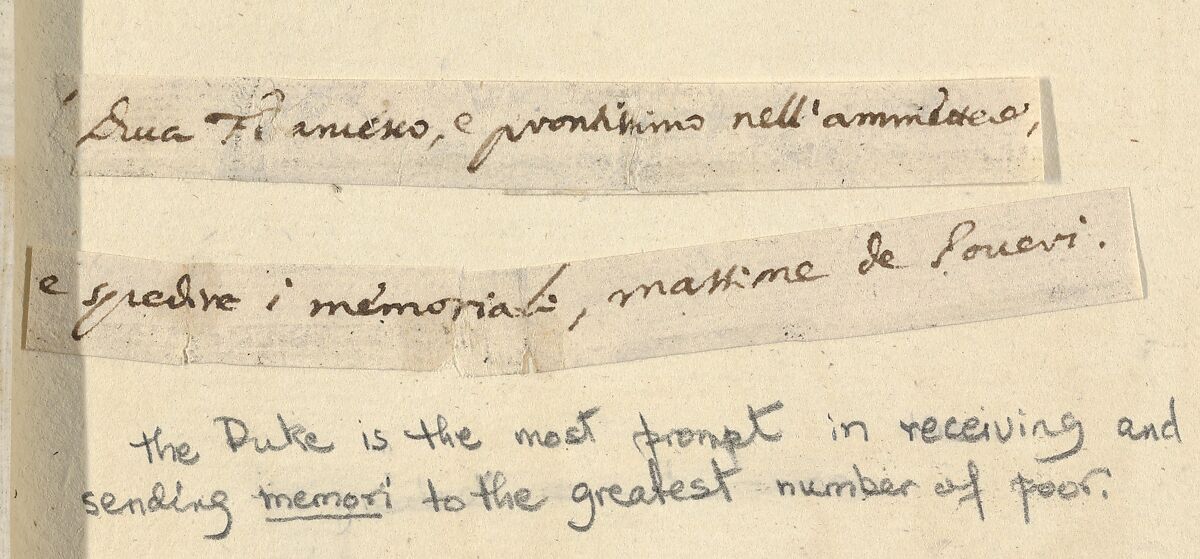 Duca Francesco, e prontissimo nell'ammettere,
e spedire i memoriali, massime de Poveri.
the Duke is the most prompt in receiving and
sending memori to the greatest number of poor.